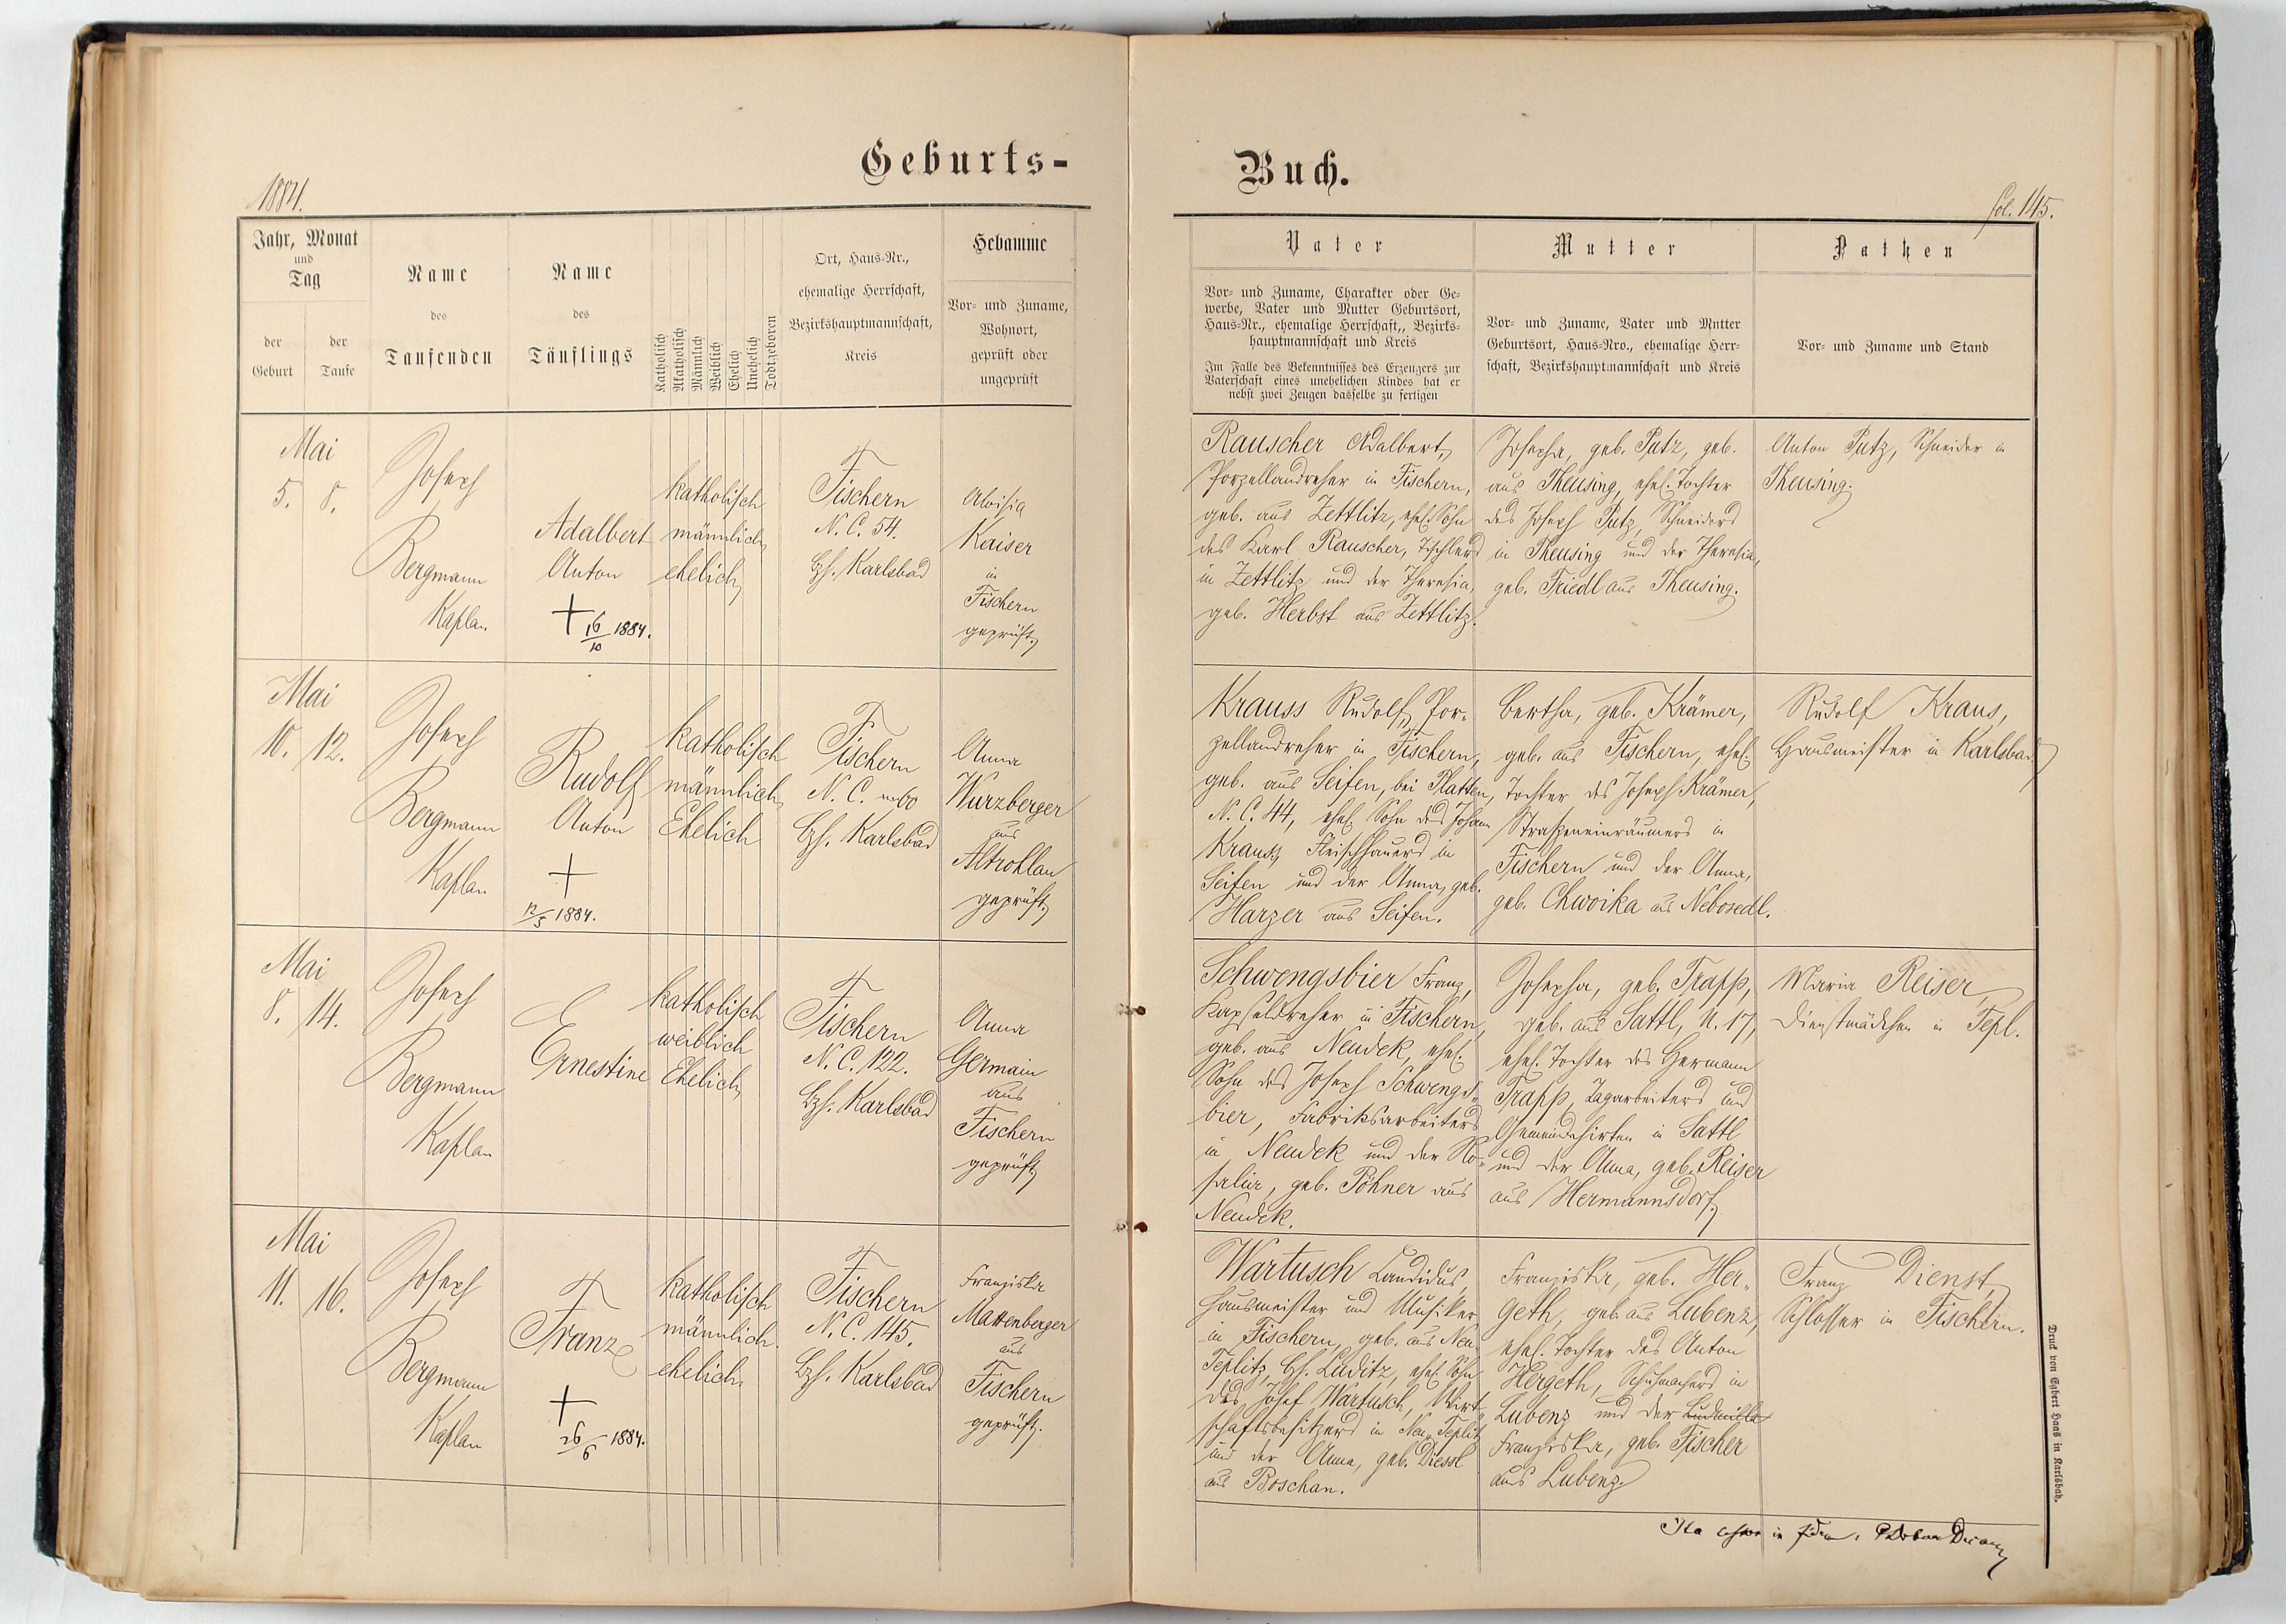 Geburts-
1884.
Jahr, Monat
und
Tag
der
Geburt
der
Taufe
Name
des
Taufenden
Name
des
Täuflings
Katholisch
Akatholisch
Männlich
Weiblich
Ehelich
Unehelich
Todtgeboren
Ort, Haus-Nr.,
ehemalige Herrschaft,
Bezirkshauptmannschaft,
Kreis
Hebamme
Vor- und Zuname,
Wohnort,
geprüft oder
ungeprüft
Mai
5. 8.
Joseph
Bergmann
Kaplan
Adalbert
Anton
+ 16/10 1884.
katholisch
männlich
ehelich
Fischern
N. C. 54.
Bzh. Karlsbad
Aloisia
Kaiser
in
Fischern
geprüft.
Mai
10. 12.
Joseph
Bergmann
Kaplan
Rudolf
Anton
+
12/5 1884.
katholisch
männlich
Ehelich
Fischern
N. C. 60
Bzh. Karlsbad
Anna
Wurzberger
aus
Altrohlau
geprüft.
Mai
8. 14.
Joseph
Bergmann
Kaplan
Ernestine
katholisch
weiblich
Ehelich
Fischern
N. C. 122.
Bzh. Karlsbad
Anna
Germain
aus
Fischern
geprüft.
Mai
11. 16.
Joseph
Bergmann
Kaplan
Franz
+
26/6 1884.
katholisch
männlich.
ehelich.
Fischern
N. C. 145.
Bzh. Karlsbad
Franziska
Mattenberger
aus
Fischern
geprüft.
Buch.
fol. 145.
Vater
Vor- und Zuname, Charakter oder Ge-
werbe, Vater und Mutter Geburtsort,
Haus-Nr., ehemalige Herrschaft,, Bezirks-
hauptmannschaft und Kreis
Im Falle des Bekenntnisses des Erzeugers zur
Vaterschaft eines unehelichen Kindes hat er
nebst zwei Zeugen dasselbe zu fertigen
Mutter
Vor- und Zuname, Vater und Mutter
Geburtsort, Haus-Nro., ehemalige Herr-
schaft, Bezirkshauptmannschaft und Kreis
Pathen
Vor- und Zuname und Stand
Rauscher Adalbert,
Porzellandreher in Fischern,
geb. aus Zettlitz, ehel. Sohn
des Karl Rauscher, Tischlers
in Zettlitz und der Theresia,
geb. Herbst aus Zettlitz.
Josepha, geb. Putz, geb.
aus Theusing, ehel. Tochter
des Joseph Putz, Schneiders
in Theusing und der Theresia,
geb. Friedl aus Theusing.
Anton Putz, Schneider in
Theusing.
Krauss Rudolf, Por-
zellandreher in Fischern,
geb. aus Seifen, bei Platten,
N. C. 44, ehel. Sohn des Johann
Krauss, Fleischhauers in
Seifen und der Anna, geb.
Harzer aus Seifen.
Bertha, geb. Krämer,
geb. aus Fischern, ehel.
Tochter des Joseph Krämer,
Straßeneinräumers in
Fischern und der Anna,
geb. Chwoika aus Nebosedl.
Rudolf Kraus,
Hausmeister in Karlsbad.
Schwengsbier Franz,
Kapseldreher in Fischern,
geb. aus Neudek, ehel.
Sohn des Joseph Schwengs-
bier, Fabriksarbeiters
in Neudek und der Ro-
salia, geb. Pöhner aus
Neudek.
Josepha, geb. Trapp,
geb. aus Sattl, N. 17,
ehel. Tochter des Hermann
Trapp, Tagarbeiters und
Gemeindehirten in Sattl
und der Anna, geb. Reiser
aus Hermannsdorf.
Maria Reiser,
Dienstmädchen in Tepl.
Wartusch Candidus,
Hausmeister und Musiker
in Fischern, geb. aus Neu-
Teplitz, Bzh. Luditz, ehel. Sohn
des Josef Wartusch, Wirt-
schaftsbesitzers in Neu-Teplitz
und der Anna, geb. Diessl
aus Boschan.
Franziska, geb. Her-
geth, geb. aus Lubenz,
ehel. Tochter des Anton
Hergeth, Schuhmachers in
Lubenz und der Ludmilla
Franziska, geb. Fischer
aus Lubenz.
Franz Dienst,
Schlosser in Fischern.
Ita
in
Druck von Egbert Haas in Karlsbad.